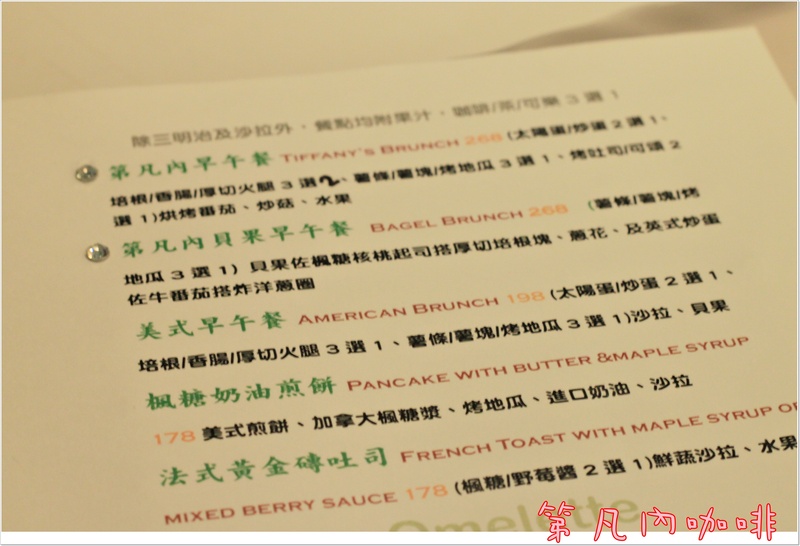 除三明治及沙拉外，餐點均附果汁，咖啡/茶/可樂 3 選 1
第凡內早午餐 TIFFANY'S BRUNCH 268 (太陽蛋/炒蛋 2 選 1、
培根/香腸/厚切火腿 3 選 2、薯條/薯塊/烤地瓜 3 選 1、烤吐司/可頌 2
選 1)烘烤番茄、炒菇、水果
第凡內貝果早午餐 BAGEL BRUNCH 268 (薯條/薯塊/烤
地瓜 3 選 1) 貝果佐楓糖核桃起司搭厚切培根塊、蔥花、及英式炒蛋
佐牛番茄搭炸洋蔥圈
美式早午餐 AMERICAN BRUNCH 198 (太陽蛋/炒蛋 2 選 1、
培根/香腸/厚切火腿 3 選 1、薯條/薯塊/烤地瓜 3 選 1)沙拉、貝果
楓糖奶油煎餅 PANCAKE WITH BUTTER &MAPLE SYRUP
178 美式煎餅、加拿大楓糖漿、烤地瓜、進口奶油、沙拉
法式黃金磚吐司 FRENCH TOAST WITH MAPLE SYRUP OR
MIXED BERRY SAUCE 178 (楓糖/野莓醬 2 選 1)鮮蔬沙拉、水果
Omelette
第凡內咖啡